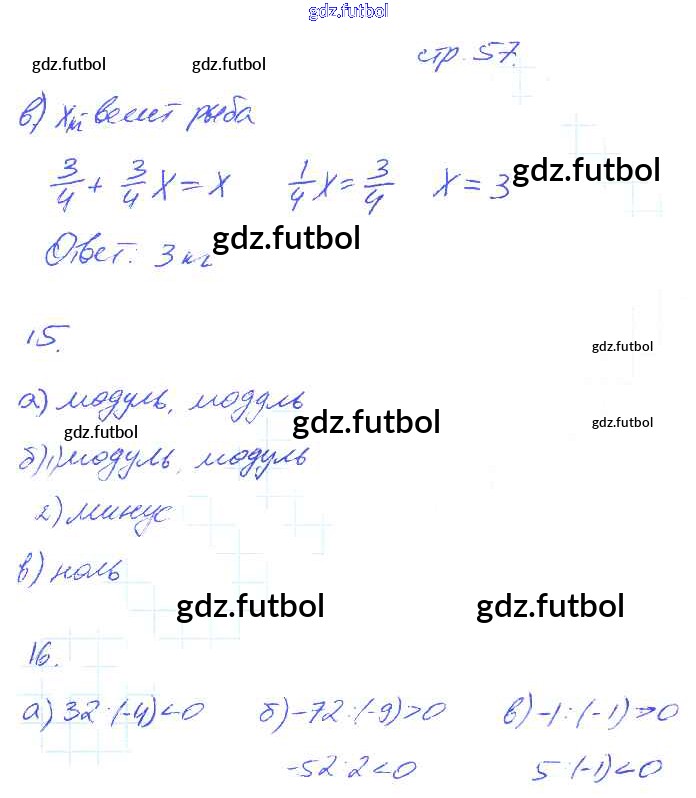 gdz.futbol
стр. 57.
gdz.futbol gdz.futbol
в) x кг весит рыба
3/4 + 3/4 x = x 1/4 x = 3/4 x = 3 gdz.futbol
Ответ: 3 кг gdz.futbol
15.
gdz.futbol
а) модуль, модуль gdz.futbol gdz.futbol
gdz.futbol
б) 1) модуль, модуль
2) минус
в) ноль
gdz.futbol gdz.futbol
16.
а) 32 : (-4) < 0 б) -72 : (-9) > 0 в) -1 : (-1) > 0
-52 : 2 < 0 5 : (-1) < 0